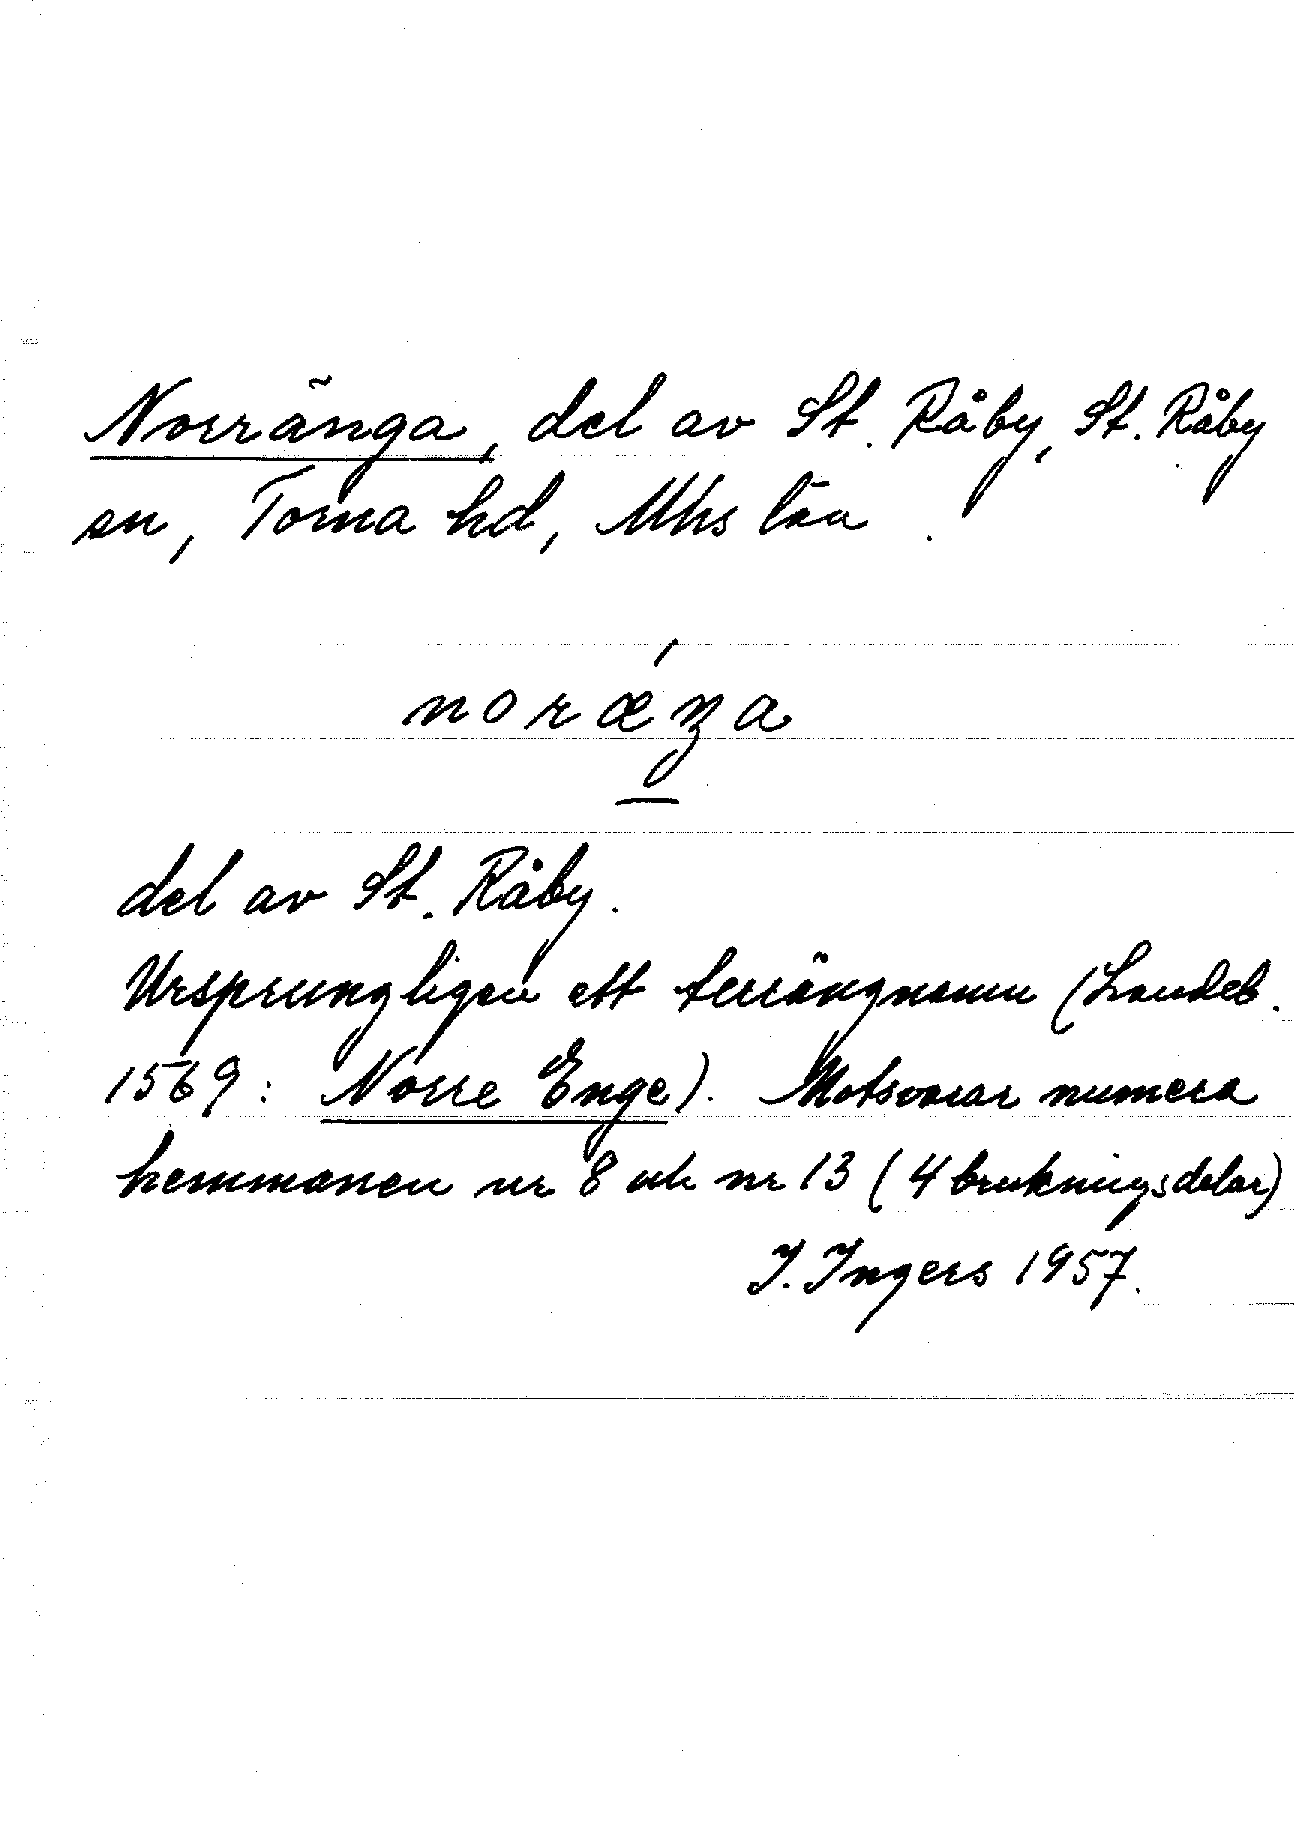 Norränga, del av St. Råby, St. Råby
sn, Torna hd, Mhs län.
noræŋa
del av St. Råby.
Ursprungligen ett terrängnamn (Landeb.
1569: Norre Enge). Motsvarar numera
hemmanen nr 8 och nr 13 (4 brukningsdelar)
I. Ingers 1957.